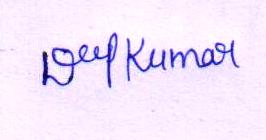 Deep Kumar